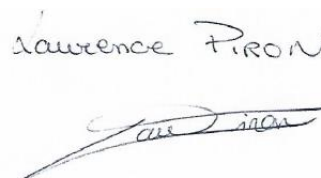 Laurence PIRON
Lau Piron